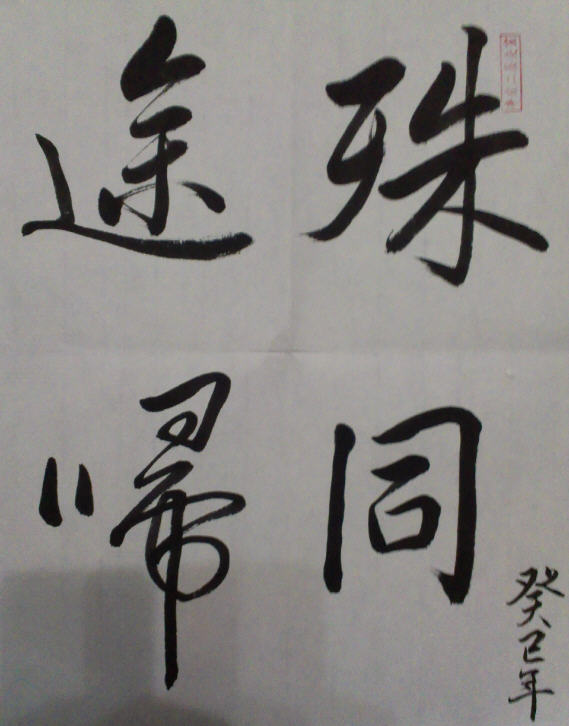 殊途
同帰
癸巳年